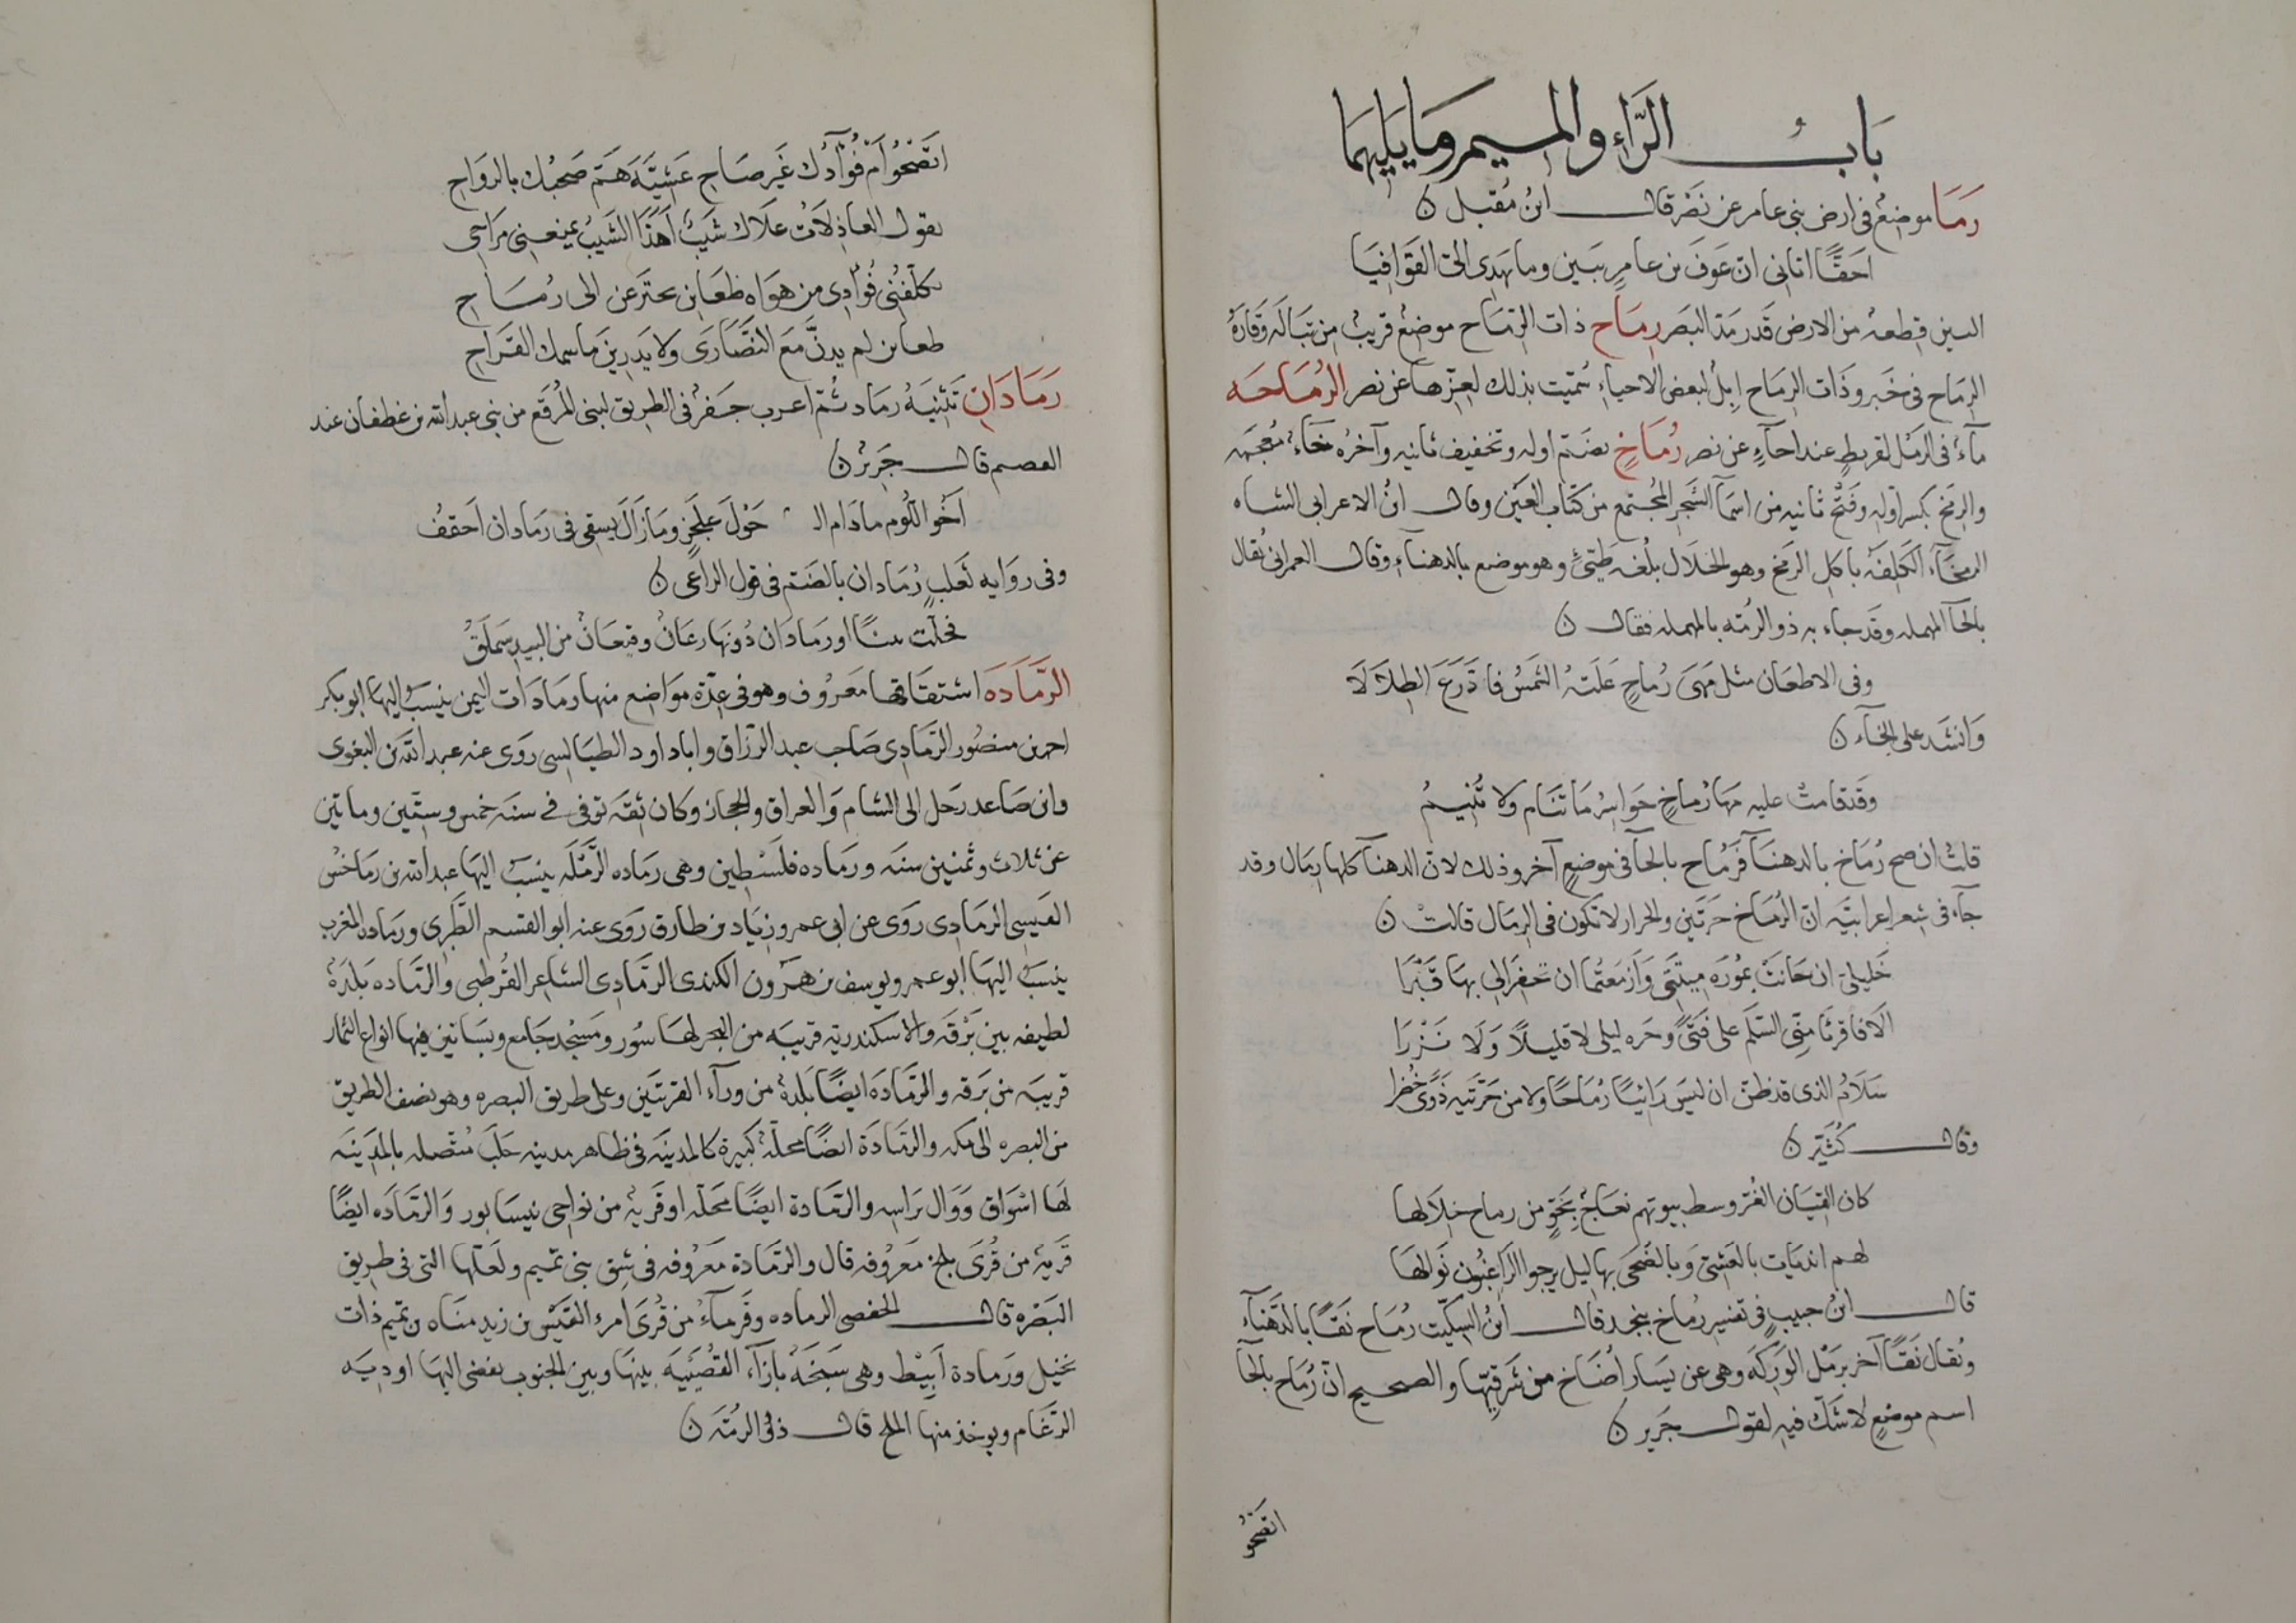 باب الرَّاءِ والميم وما يليهما
رَمَا موضعٌ في ارض بني عامر عن نَصْر قال ابنُ مُقبل ن
احَقًّا اتاني انّ عَوفَ بن عامرٍ ببَين وما يهدي اليّ القَوَافيَا
البين قطعه من الارض قَدر مَدّ البَصَر رِمَاح ذات الرّمَاح موضعٌ قريبٌ من تَبَالَه وَقَارَةُ
الرمَاح في خَبر وذَات الرِمَاح اِبِلٌ لبعض الاحياء سُمّيت بذلك لعِزّها عن نصر الرُمَاحَه
مآءٌ في الرَمْل لقريطٍ عند احآءٍ عن نصر رُمَاخٍ بضَتم اوله وتخفيف ثانيه وآخرُه خآءٌ مُعجَمه
والرِمَخ بكسر اوّلِهِ وفَتْح ثانيه من اسمآ الشَجر المجُتمع من كتاب العَيْن وقال ابنُ الاعرابي الشاه
الرمخآء الكَلِفَة باكل الرَمَخ وهو الخَلَال بلُغَه طَيّئٍ وهو موضع بالدهنآءِ وقال العمراني يُقال
بالحآ المهمله وقَد جاء به ذو الرُمّه بالمهمله فقال ن
وفي الاظعَان مثل مَهَى رُمَاحٍ عَلَتهُ الشَمسُ فادّرَعَ الظلَالَا
وَانشَد على الخآء ن
وقَد قامتْ عليه مَهَا رُمَاخٍ حَواسِرُ مَا تَنَام ولا تُنيمُ
قلتُ ان صح رُمَاخ بالدهنَآ فَرُمَاح بالحآ في موضعٍ آخر وذلك لانّ الدهنآ كلها رِمَال وقد
جآء في شِعر اعرابيّه انّ الرُمَاخ حَرّتَين والحرار لا تكون في الرِمَال قالتْ ن
خَليليّ ان حَانَتْ بمُورَة مِيتَتي وَازمَعتُما ان تحفرا لي بهَا قَبْرَا
الَا فاقرئَا مِنّي السّلَم على فَتىً وحَره ليلى لا قليلًا وَلَا نَزْرَا
سَلَامُ الذي قد ظنّ ان ليسَ رَائيًا رُمَاحًا ولا من حَرّتَيه ذَرًى خُضْرا
وقال كُثَيّر ن
كان القِيَان الغُرّ وسط بيوتهم نعَاجٌ بجَوٍّ من رماح خِلَالها
لهم انديَات بالعَشِيّ وَبالضُحَى بهاليل يرجوا الرَّاغبُون نَوالها
قال ابنُ حبيبٍ في تفسير رُمَاخ بنجد قال ابنُ السِكّيت رُمَاح نَقًا بالدَهنآءِ
ويُقال نَقًا آخر برَمْل الوَرِكَه وهي عن يسَار أُضَاخ من شَرقيّها والصحيح انّ رُمَاح بالحآ
اسم موضعٍ لا شَكّ فيه لقول جَرير ن
اتصحُو
اتَصْحُوا اَمْ فُؤَآدُك غَير صَاحِ عَشِيَّةَ هَمّ صَحبُك بالروَاحِ
يقول العاذِلَاتُ عَلَاك شَيبٌ اَهَذَا الشَيبُ يمنعني مرَاحي
يكلّفُني فُوَادي من هوَاه ظعَاين يحتزعن الى رُمَاحِ
ظعاين لم يدنَّ مَعَ النَصَارَى ولا يَدرِينَ ما سمك القَرَاحِ
رَمَادَانِ تَثنيَةُ رمَاد ثُمّ اعرب جَفرٌ في الطريق لبني المُرقّع من بني عبد الله بن غطفان عند
العصم قال جَرِيرٌ ن
اَخُوا اللُوم ما دَام ال حَوْلَ عَلجَزٍ ومَا زَالَ يسقى في رَمَادان اَحقفُ
وفي روَايه ثَعلَبٍ رُمَادان بالضَتم في قول الراعي ن
فحلّت نبيًا او رمَادَان دُونها رعَانٌ وقيعَانٌ من البيدِ سَملَقُ
الرَّمَادَه اشتقَاقها مَعرُوف وهو في عِدّة موَاضع منها رمَادَات اليَمن يُنسَب اليها ابو بكر
احمد بن منصُور الرَّمَادِي صَاحب عبد الرزّاق وابا داود الطيَالسي رَوَى عنه عبد الله بن البغوي
وابن صَاعد رَحل الى الشام وَالعراق والحجاز وكان ثِقَه توفي في سنَه خمس وستّين وماتين
عن ثلاث وثمنين سنَه ورمَاده فلَسْطين وهي رمَاده الرَّمْلَه ينسَبُ اليهَا عبد الله بن رمَاحُس
القيسي الرمَادي رَوَى عن ابي عمرو زيَاد بن طارق رَوَى عنه ابو القسم الطَبَري ورمَاده المغرب
ينسَبُ اليهَا ابو عمرو يوسف بن هرون الكندي الرمَادي الشاعر القُرطبي والرمَاده بَلدَةٌ
لطيفه بين بَرْقَه والاسكندريّه قريبَه من البحر لها سُور ومَسْجد جَامع وبسَاتين فيها انواع الثمار
قريبَه من بَرقه والرمَادَه ايضًا بَلدَةٌ من ورآءِ القريتَين وعلى طريق البصره وهو نصف الطريق
من البصره الى مكه والرمَادَة ايضًا محلّةٌ كبيرة كالمدينَه في ظاهر مدينه حَلَب مُتّصله بالمَدِينَه
لهَا اسْوَاق وَوَال بَراسِه والرمَادة ايضًا محَلّه او قَريةٌ من نواحي نيسَابور وَالرمَادَه ايضًا
قَريةٌ من قُرَى بلخ معَرُوفه قال والرمَادَة مَعَرُوفه في شِق بني تميم ولعلّها التي في طريق
البَصْره قال الحفصي الرماده وقَرمآءُ من قُرَى امرء القَيْس بن زيد منَاه بن تميم ذات
نخيل ورَمادة اَبيَط وهي سَبخَةٌ بازآءِ القُصَيْبيَه بينهَا وبين الجنوب يفضي اليهَا اوديَه
الرغَام ويوخذ منها الملح قال ذو الرُمّه ن